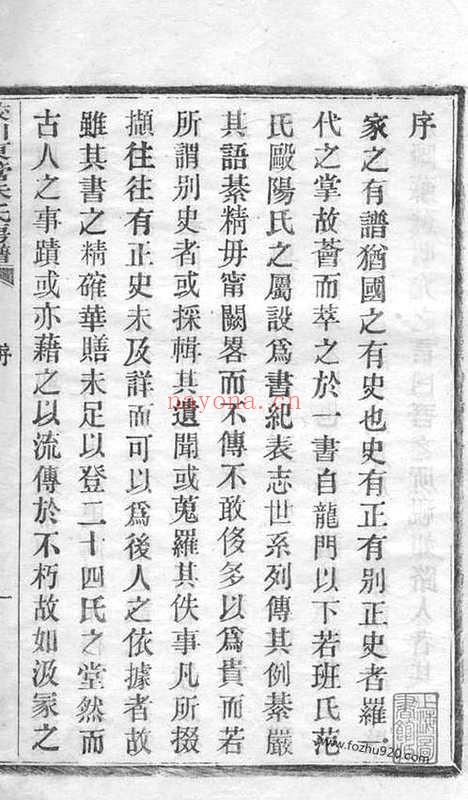 序
家之有譜猶國之有史也史有正有別正史者羅一
代之掌故薈而萃之於一書自龍門以下若班氏范
氏毆陽氏之屬設爲書紀表志世系列傳其例綦嚴
其語綦精毋甯闕畧而不傳不敢侈多以爲貴而若
所謂別史者或採輯其遺聞或蒐羅其佚事凡所掇
擷往往有正史未及詳而可以爲後人之依據者故
雖其書之精確華贍未足以登二十四氏之堂然而
古人之事蹟或亦藉之以流傳於不朽故如汲冢之
氏房譜
序
一
nayona.cn
www.fozhu920.com